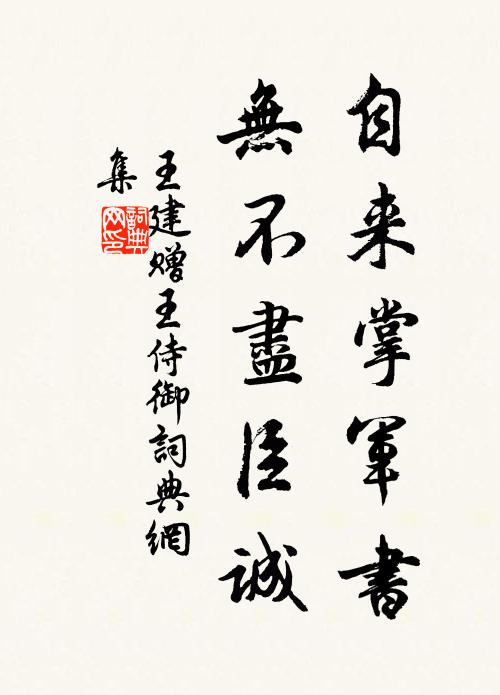 自来掌軍書
無不盡臣誠
王建贈王侍御詞典網
集
詞典
网印